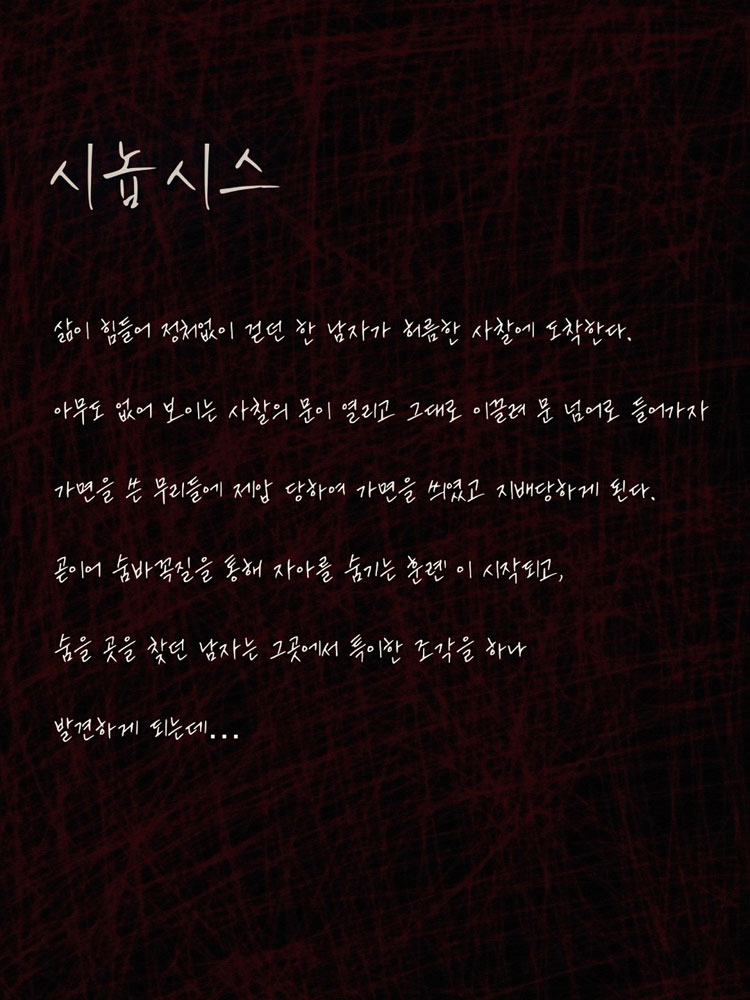 시놉시스
삶이 힘들어 정처없이 걷던 한 남자가 허름한 사찰에 도착한다.
아무도 없어 보이는 사찰의 문이 열리고 그대로 이끌려 문 넘어로 들어가자
가면을 쓴 무리들에 제압 당하여 가면을 씌였고 지배당하게 된다.
곧이어 숨바꼭질을 통해 자아를 숨기는 훈련' 이 시작되고,
숨을 곳을 찾던 남자는 그곳에서 특이한 조각을 하나
발견하게 되는데...